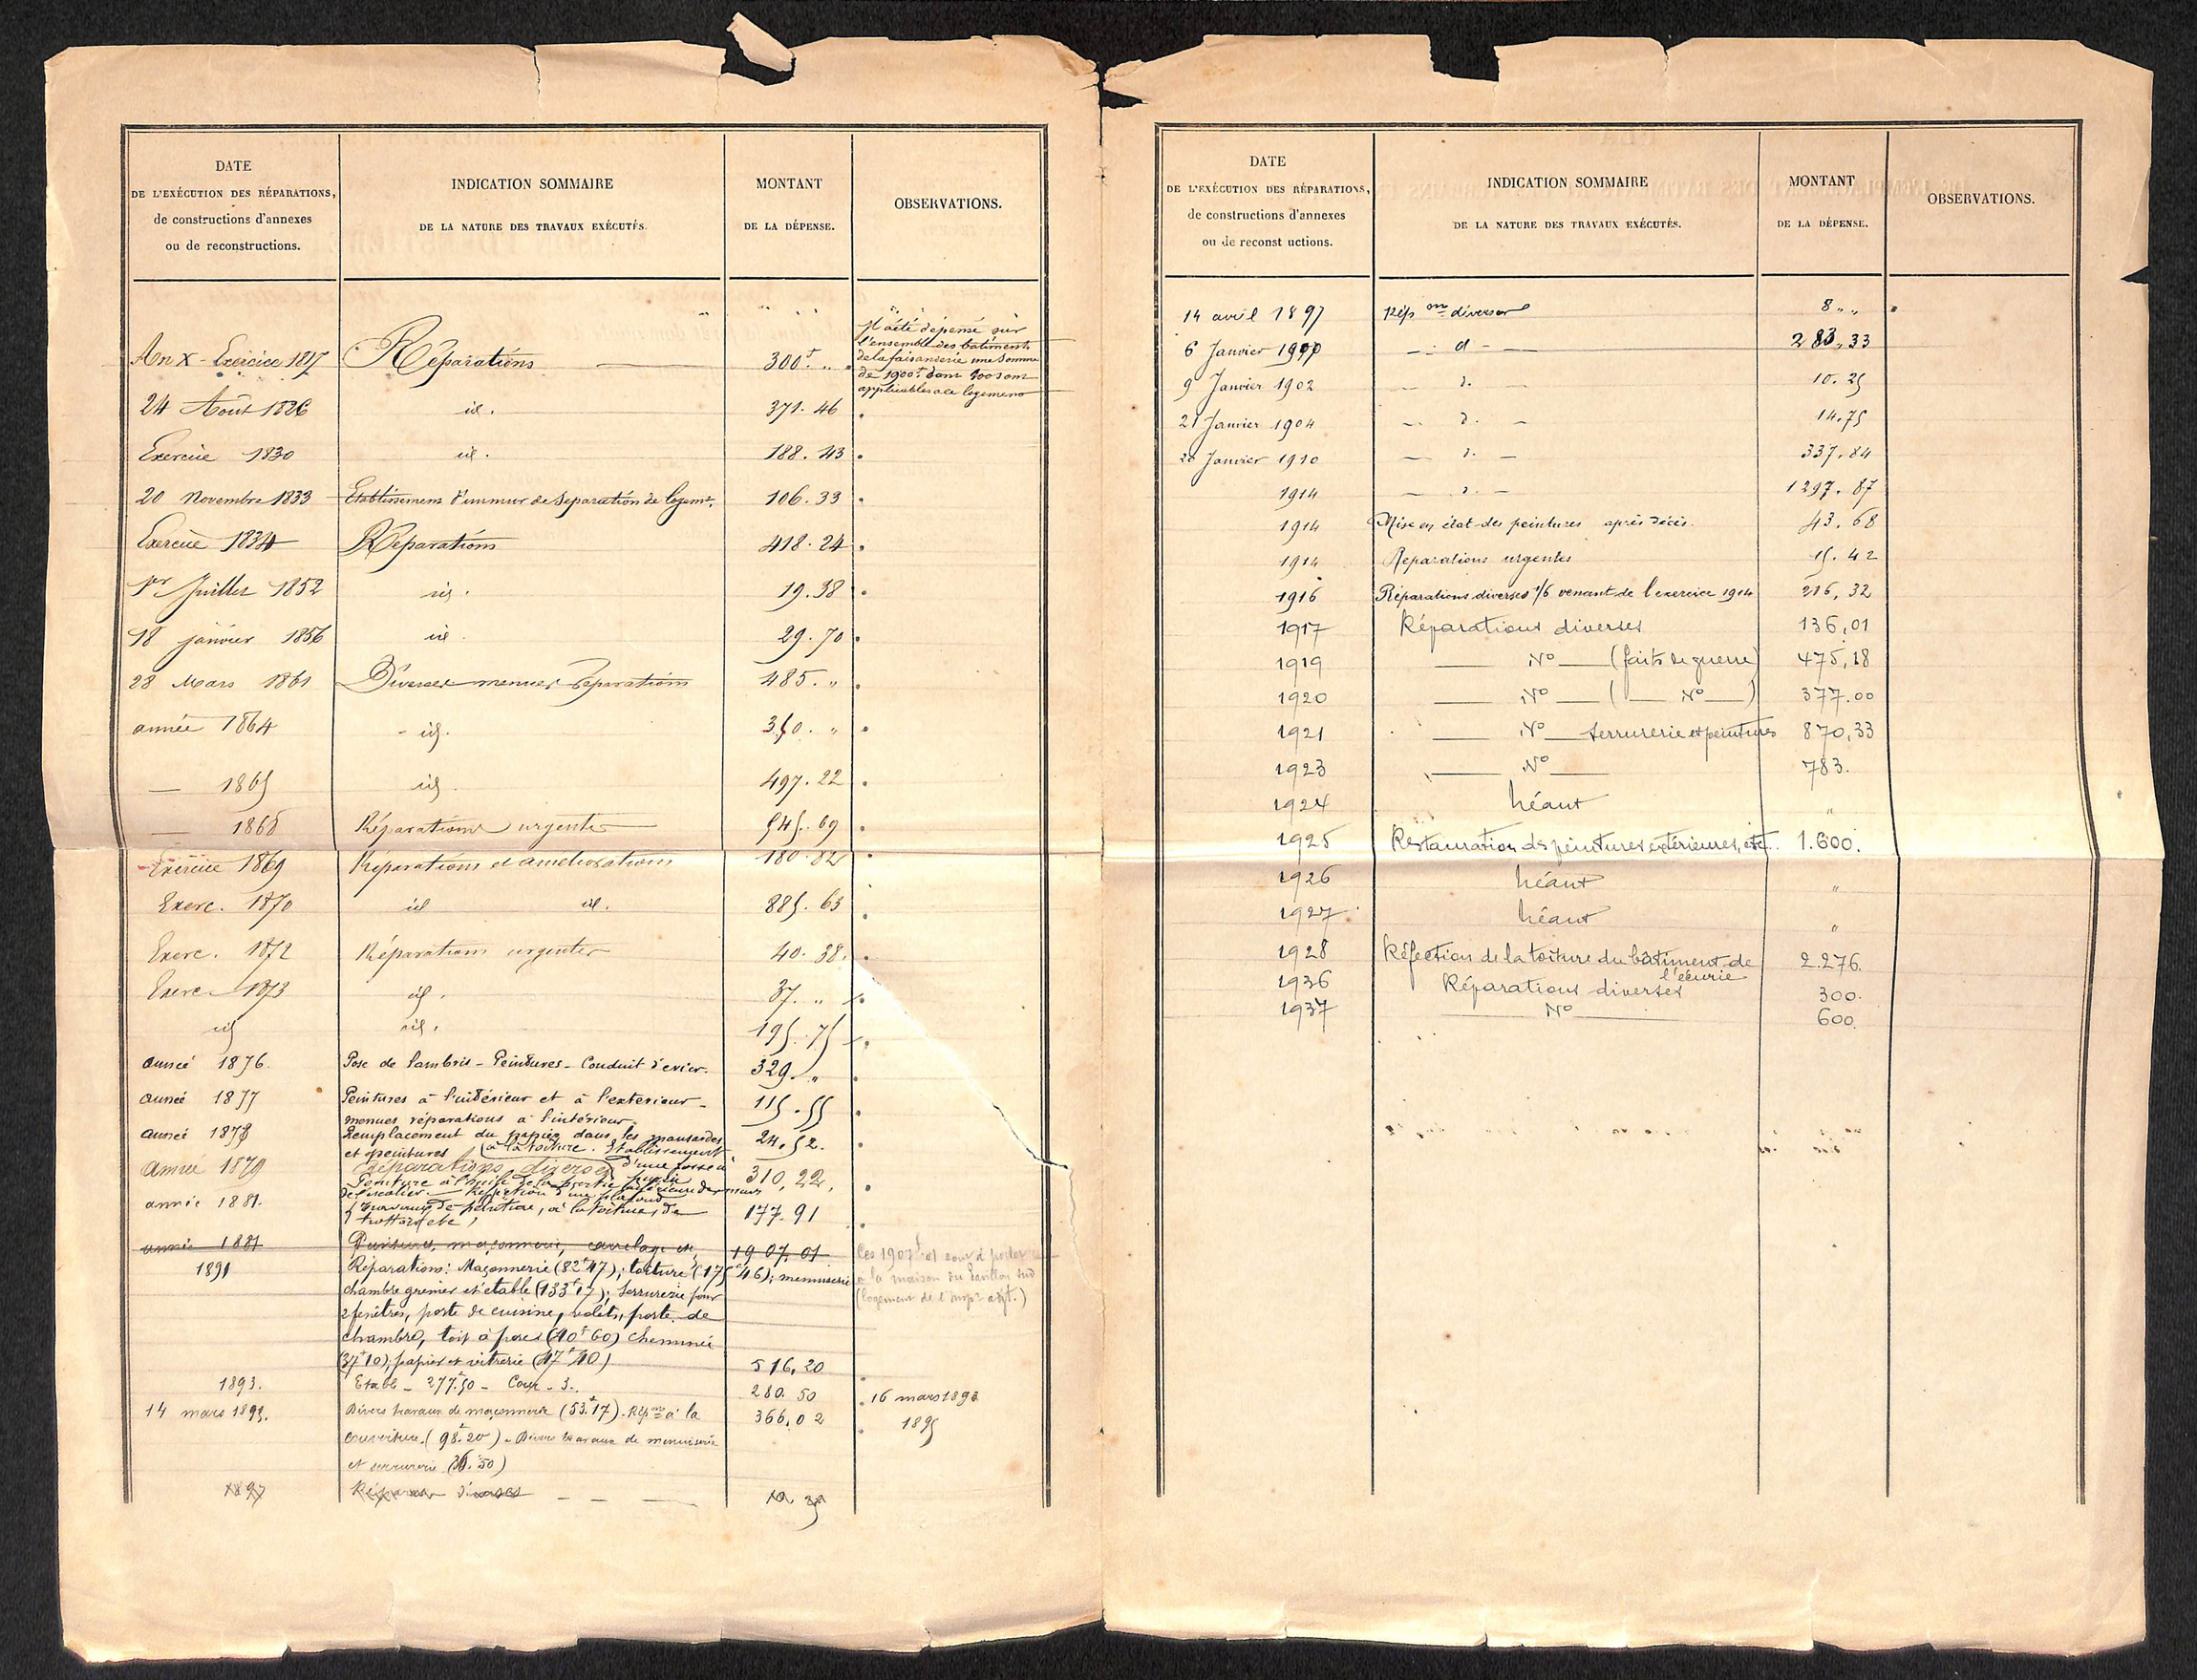 DATE
DE L'EXÉCUTION DES RÉPARATIONS,
de constructions d'annexes
ou de reconstructions.
INDICATION SOMMAIRE
DE LA NATURE DES TRAVAUX EXÉCUTÉS.
MONTANT
DE LA DÉPENSE.
OBSERVATIONS.
Il a été dépensé sur
l'ensemble des batiments
de la faisanderie une Somme
de 1900f dont 300 sont
applicables a ce logement
An X - Exercice 1817 Réparations 300f "
24 Août 1826 id. 371.46
Exercice 1830 id. 188.43
20 Novembre 1833 Etablissement d'un mur de Separation de logemt. 106.33
Exercice 1834 Réparations 418.24
1er Juillet 1852 id. 19.38
18 janvier 1856 id. 29.70
28 Mars 1861 Diverses menues Réparations 485. "
année 1864 - id. 350. "
— 1865 id. 497.22
— 1868 Réparations urgentes 545.69
Exercice 1869 Réparations et améliorations 180.82
Exerc. 1870 id id. 885.63
Exerc. 1872 Réparations urgentes 40.38
Exerc. 1873 id. 37. "
id id. 195.75
année 1876. Pose de lambris - Peintures - Conduit d'évier. 329. "
année 1877 Peintures à l'intérieur et à l'exterieur - 115.55
menues réparations à l'intérieur
année 1878 Remplacement du papier dans les mansardes 24.52.
et peintures (à la toiture. Etablissement
année 1879 Réparations diverses d'une fosse à 310,22.
Peinture à l'huile de la partie
de l'escalier - Réfection d'un plafond
année 1881. Travaux de peinture, à la toiture, de 177.91
trottoir etc
année 1881 Peintures, maçonnerie, carrelage etc, 1907,01 Ces 1907f 01 sont à porter
à la maison du Pavillon Sud
(logement de l'Inspr adjt.)
1891 Réparations: Maçonnerie (82f47); toiture (175f46); menuiserie
chambre grenier et étable (133f17); Serrurerie pour
2 fenêtres, porte de cuisine, volets, porte de
chambre, toit à porcs (40f60) Cheminée
(37f10); papier et vitrerie (47f40) 516,20
1893. Etabl - 277.50 - Cour - 3.. 280.50 16 mars 1893
14 mars 1895. Divers travaux de maçonnerie (53f17). Répons à la 366,02 1895
couverture. (98f20) - Divers travaux de menuiserie
et serrurerie
1897 diverses
DATE
DE L'EXÉCUTION DES RÉPARATIONS,
de constructions d'annexes
ou de reconst uctions.
INDICATION SOMMAIRE
DE LA NATURE DES TRAVAUX EXÉCUTÉS.
MONTANT
DE LA DÉPENSE.
OBSERVATIONS.
14 avril 1897 Rép ons diverses 8 " "
6 Janvier 1900 — d — 283,33
9 Janvier 1902 — d. — 10.25
21 Janvier 1904 — d. — 14.75
28 Janvier 1910 — d. — 337.84
1914 — d. — 1297.87
1914 Mise en état des peintures après décès. 43.68
1914 Réparations urgentes 15.42
1916 Réparations diverses 1/6 venant de l'exercice 1914 216,32
1917 Réparations diverses 136,01
1919 — do — (faits de guerre) 475,18
1920 — do — (— do —) 377.00
1921 — do — Serrurerie et peintures 870,33
1923 — do — 783.
1924 néant "
1925 Restauration des peintures extérieures, etc.. 1.600.
1926 néant "
1927. néant "
1928 Réfection de la toiture du bâtiment de 2.276.
l'écurie
1936 Réparations diverses 300.
1937 — do — 600.